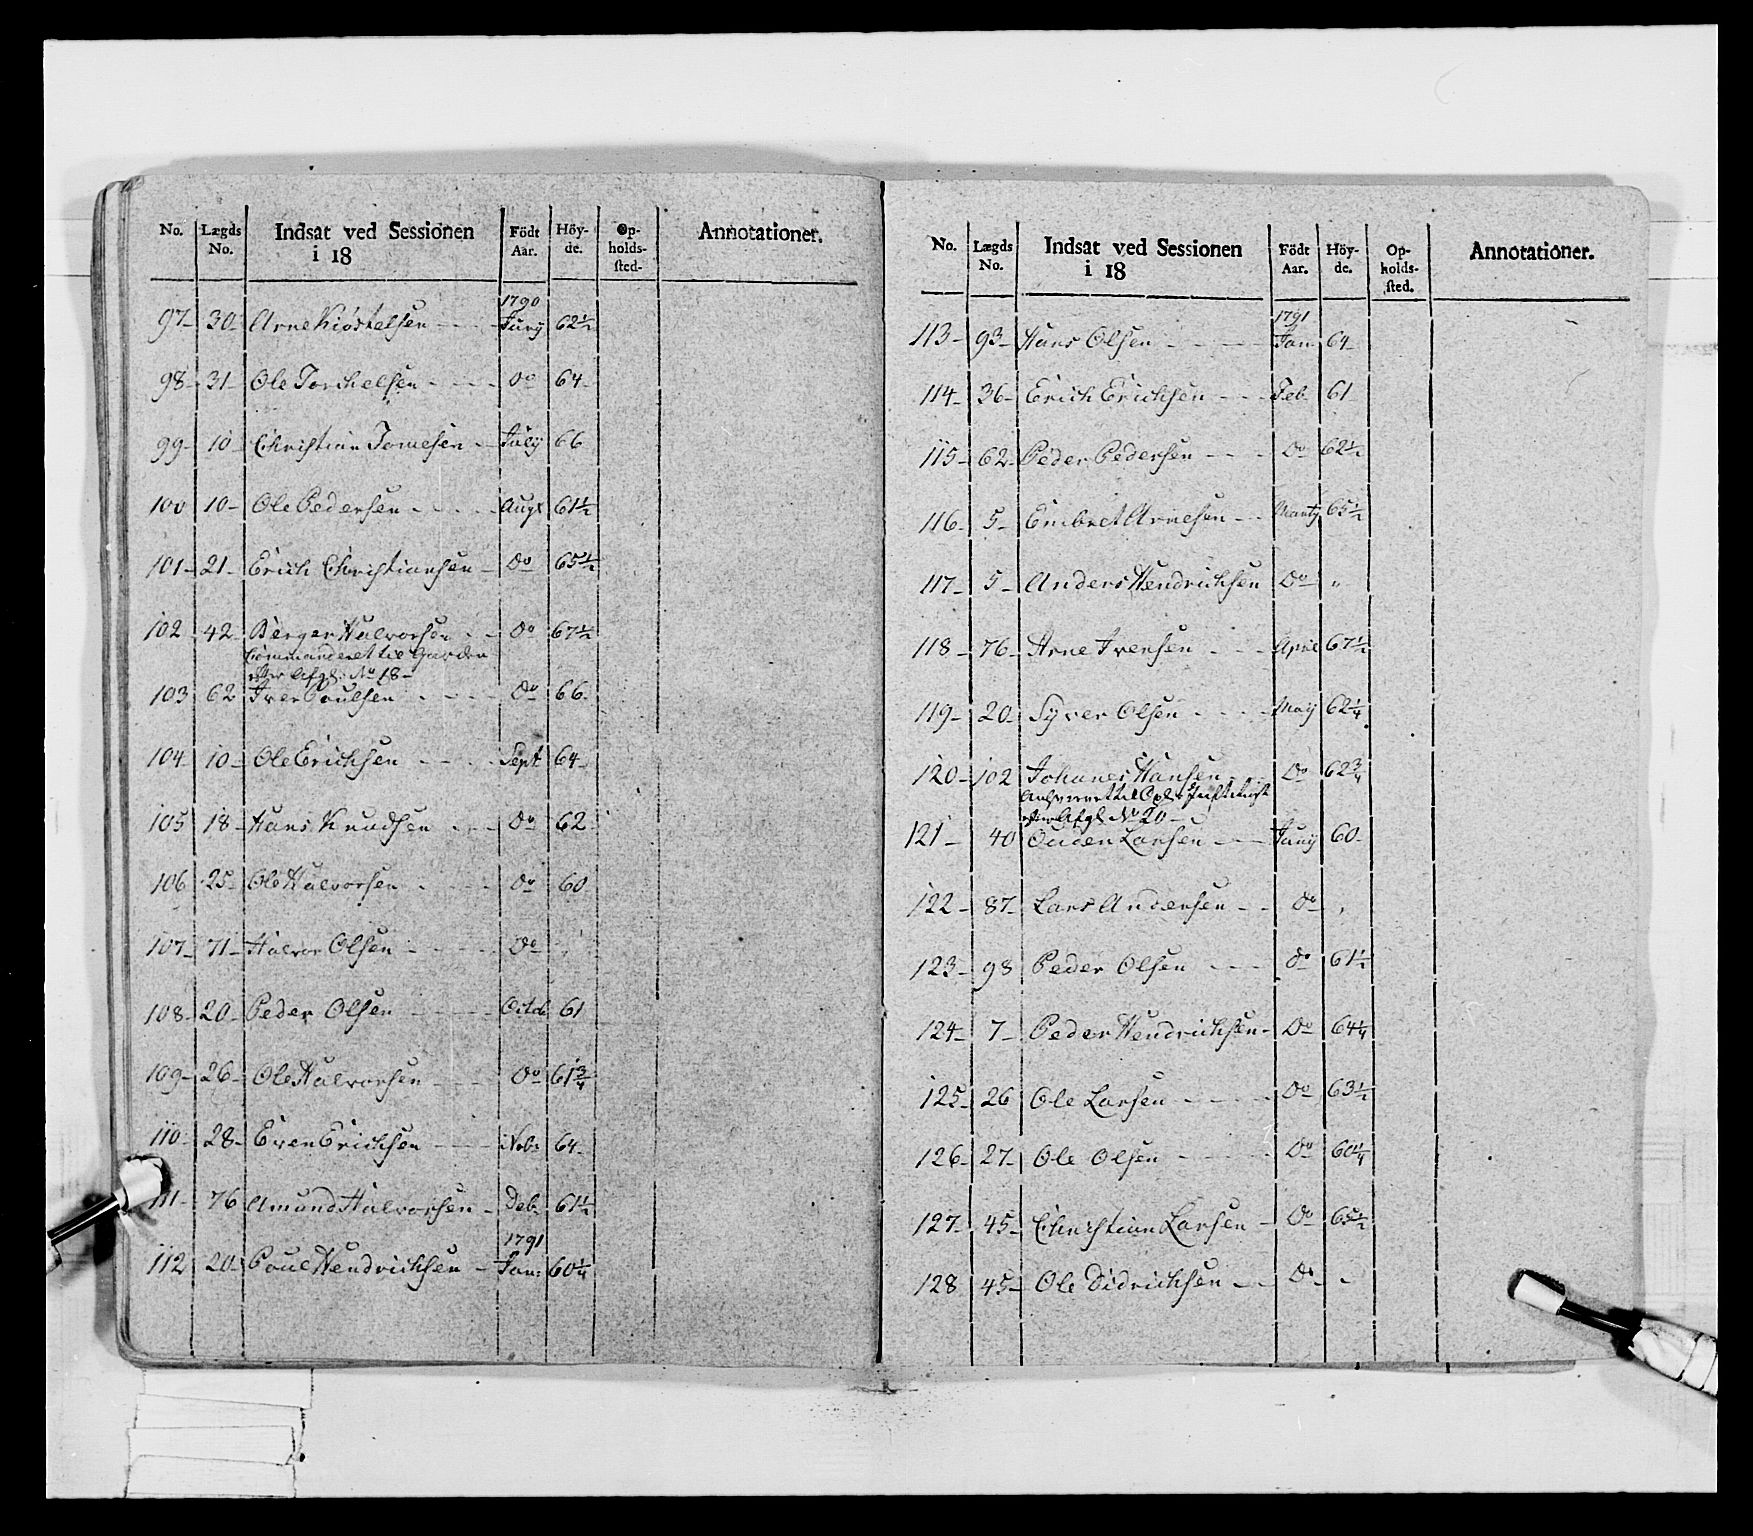 No. Lægds No. Indsat ved Sessionen i 18 Födt Aar. Höy-de. Op-holds-sted. Annotationer.
1790
97- 30- Arne Kiöstelsen - - - Juny 62½
98- 31- Ole Torchelsen - - - - Do 64-
99- 10- Christian Tomesen - - July 66
100 10- Ole Pedersen - - - - - Augt 61½
101- 21- Erich Christiansen - Do 65½
102 42 Berger Halvorsen - - Do 67½
Commanderet til Garden
efter Afgl: No 18-
103 62 Iver Poulsen - - - - Do 66
104- 10- Ole Erichsen - - - - Sept 64-
105 18- Hans Knudsen - - - Do 62
106 25- Ole Halvorsen - - - Do 60
107- 71- Halvor Olsen - - - - Do
108- 20- Peder Olsen - - - - - Octob 61
109- 26- Ole Halvorsen - - - Do 61¾
110- 28- Even Erichsen - - - Nob: 64-
111- 76 Amund Halvorsen - Deb: 61½
1791
112 20- Poul Hendrichsen - Jan: 60¼
No. Lægds No. Indsat ved Sessionen i 18 Födt Aar. Höy-de. Op-holds-sted. Annotationer.
1791
113- 93- Hans Olsen - - - - - Jan 64-
114- 36- Erich Erichsen - - - Feb 61
115- 62- Peder Pedersen - - - Do 62½
116- 5- Embret Arnesen - - Marty 65½
117- 5- Anders Hendrichsen Do "
118- 76- Arne Iversen - - - April 67½
119- 20- Syver Olsen - - - - May 62¼
120- 102 Johanes Hansen - - Do 62¾
efter Afgl No 20-
121- 40 Ouden Larsen - - - Juny 60-
122- 87- Lars Andersen - - Do "
123- 98 Peder Olsen - - - Do 61½
124- 7- Peder Hendrichsen- Do 64¼
125- 26 Ole Larsen - - - - - Do 63½
126- 27- Ole Olsen - - - - - Do 60¼
127- 45- Christian Larsen - Do 65½
128 45- Ole Didrichsen - - Do -